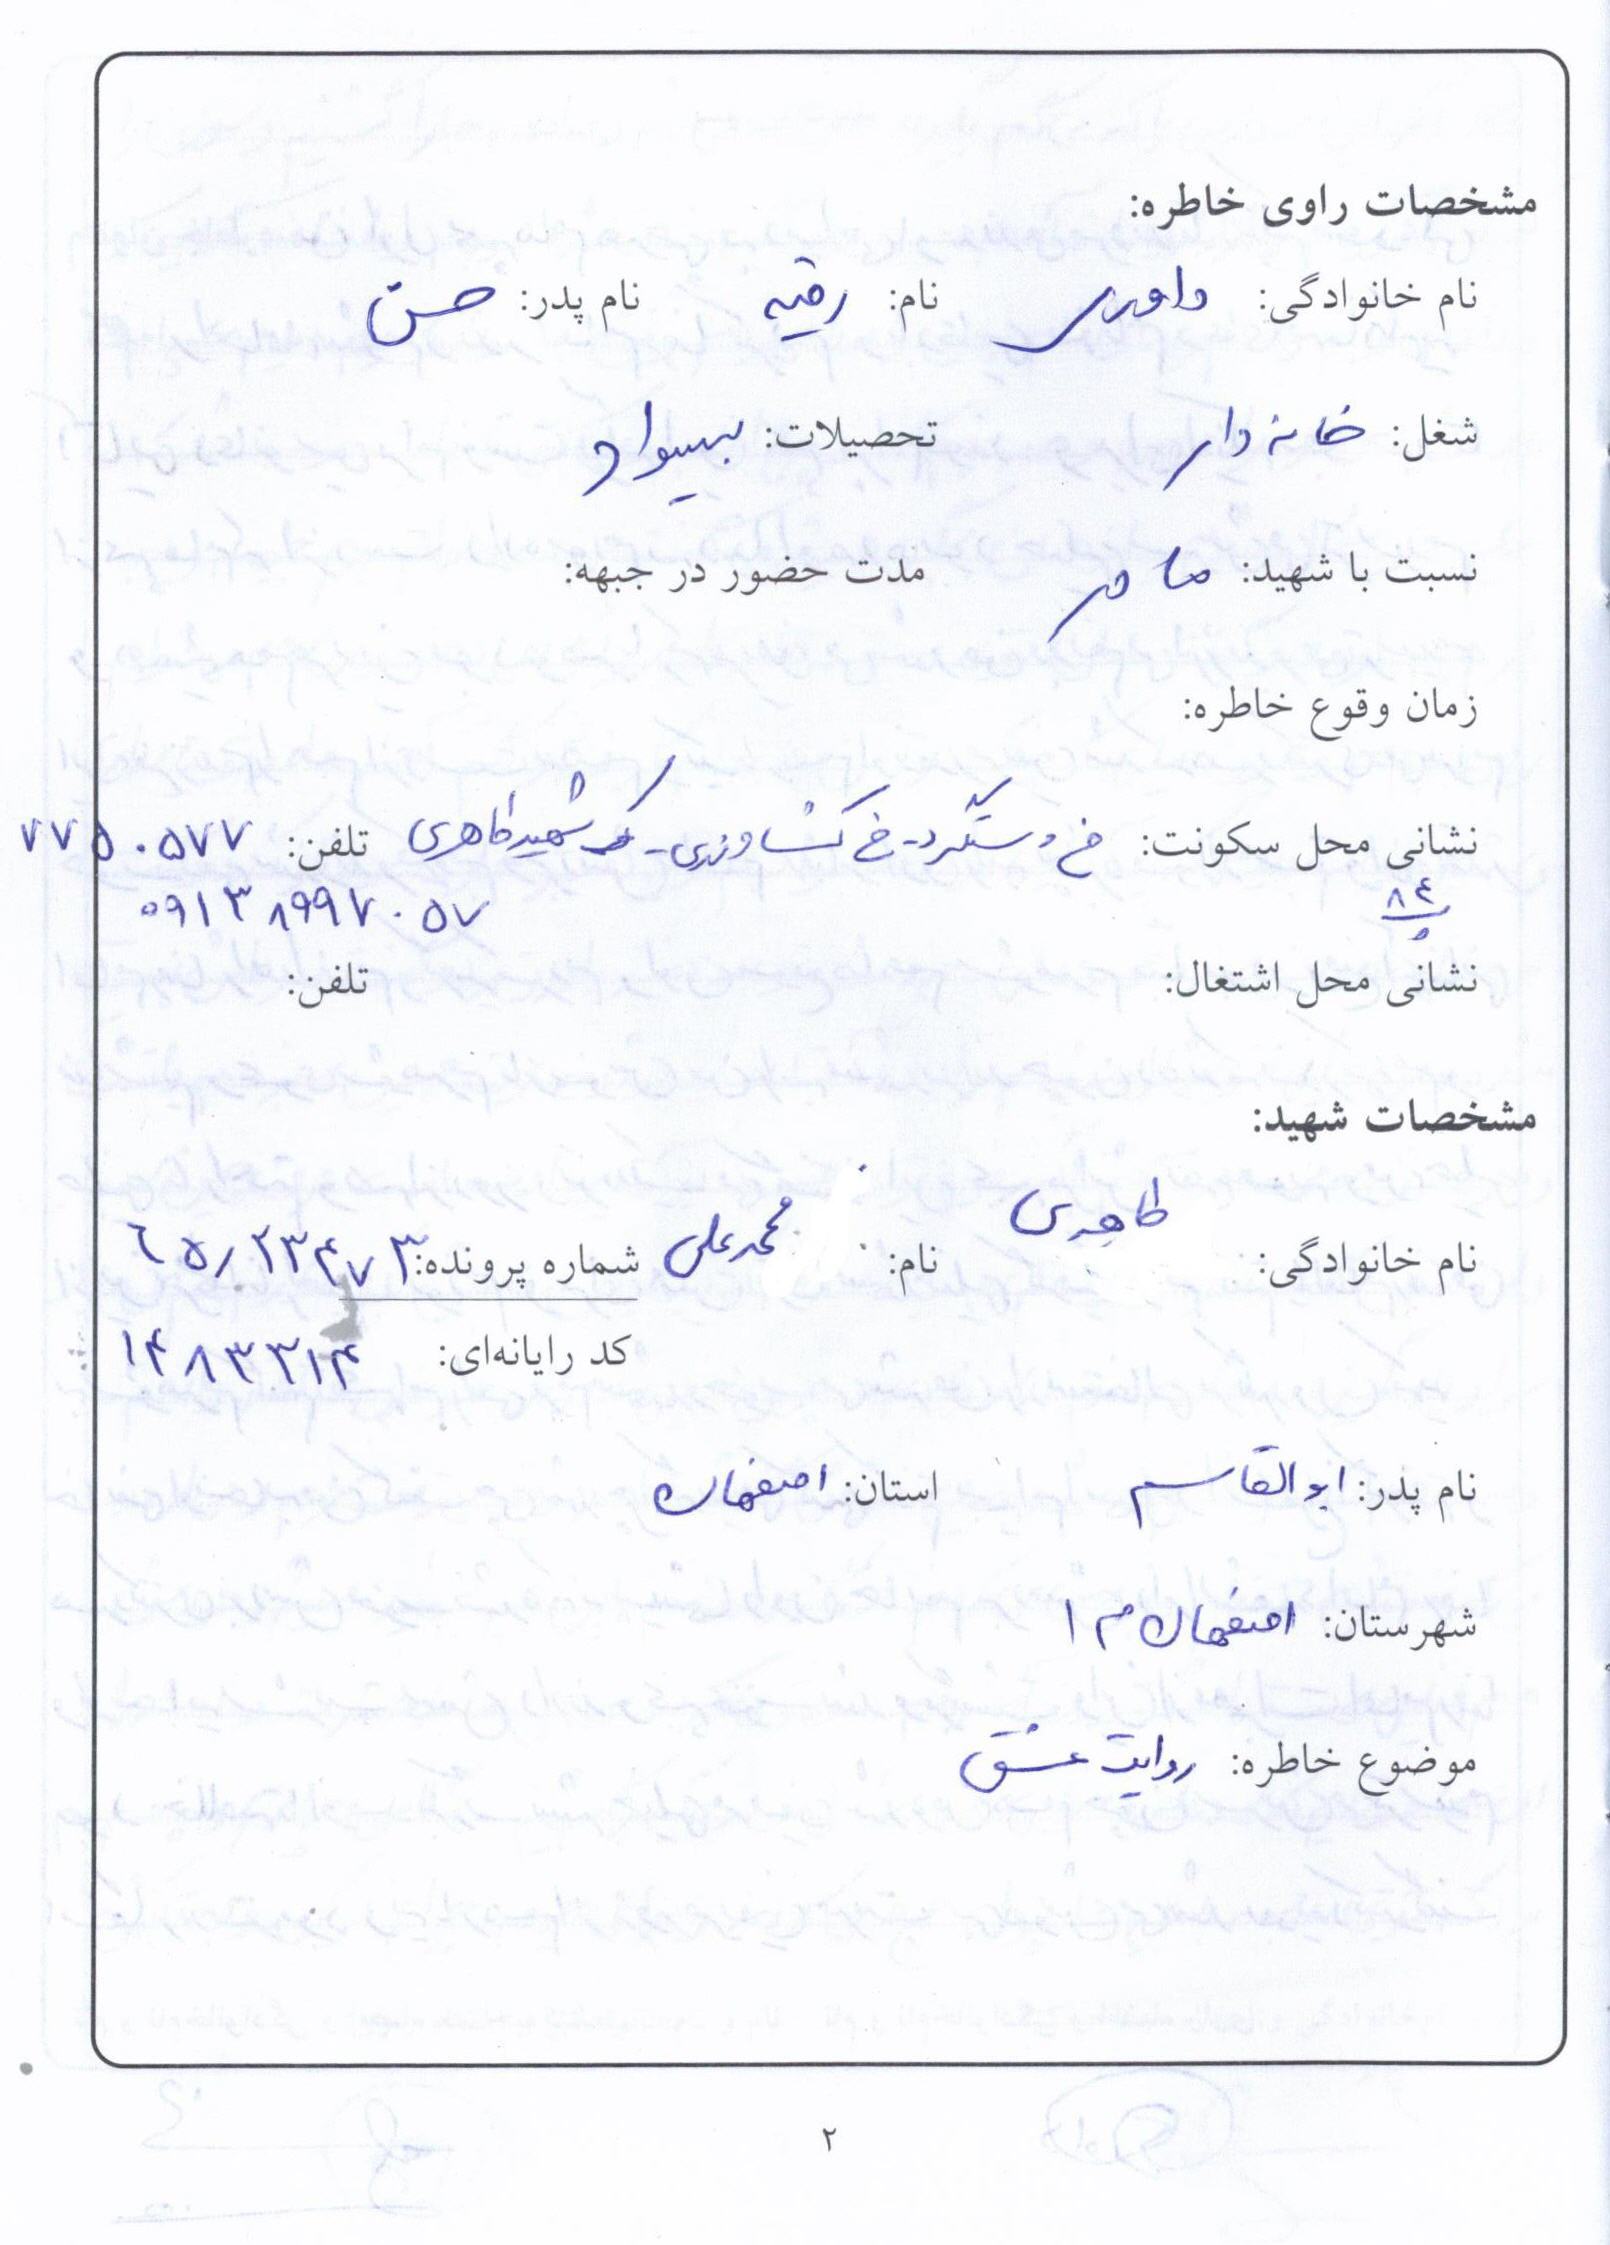 مشخصات راوی خاطره:
نام خانوادگی: داوری نام: رقیه نام پدر: حسن
شغل: خانه دار تحصیلات: بیسواد
نسبت با شهید: مادر مدت حضور در جبهه:
زمان وقوع خاطره:
نشانی محل سکونت: خ دستگرد - خ کشاورزی - ک شهید طاهری تلفن: ۷۷۵۰۵۷۷
۸۴ ۰۹۱۳۸۹۹۷۰۵۷
نشانی محل اشتغال: تلفن:
مشخصات شهید:
نام خانوادگی: طاهری نام: محمدعلی شماره پرونده: ۶۵/۲۳۴۷۳
کد رایانه‌ای: ۱۴۸۳۳۱۴
نام پدر: ابوالقاسم استان: اصفهان
شهرستان: اصفهان م ۱
موضوع خاطره: روایت عشق
۲